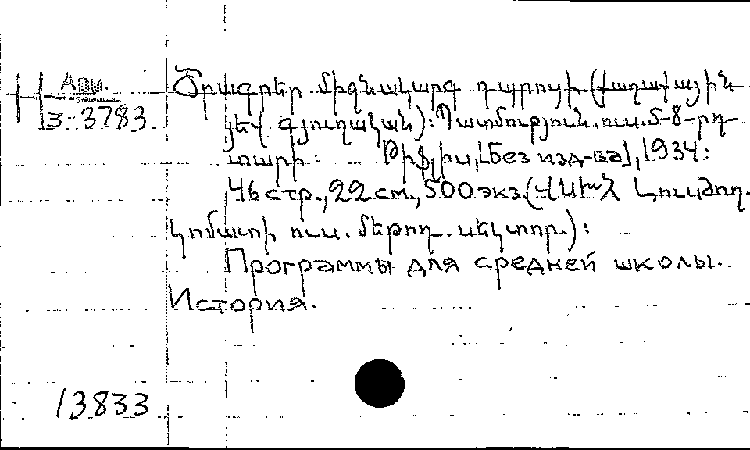 Арм.
3-3783
Ծրագրեր միջնակարգ դպրոցի (քաղաքային
յեվ գյուղական): Պատմություն. ուս. 5-8-րդ
տարի: Թիֆլիս, [Без изд-ва], 1934:
46 стр., 22 см., 500 экз. (ՎՍԽՀ Լուսժող.
կոմատի ուս. մեթոդ. սեկտոր.):
Программы для средней школы.
История.
13833